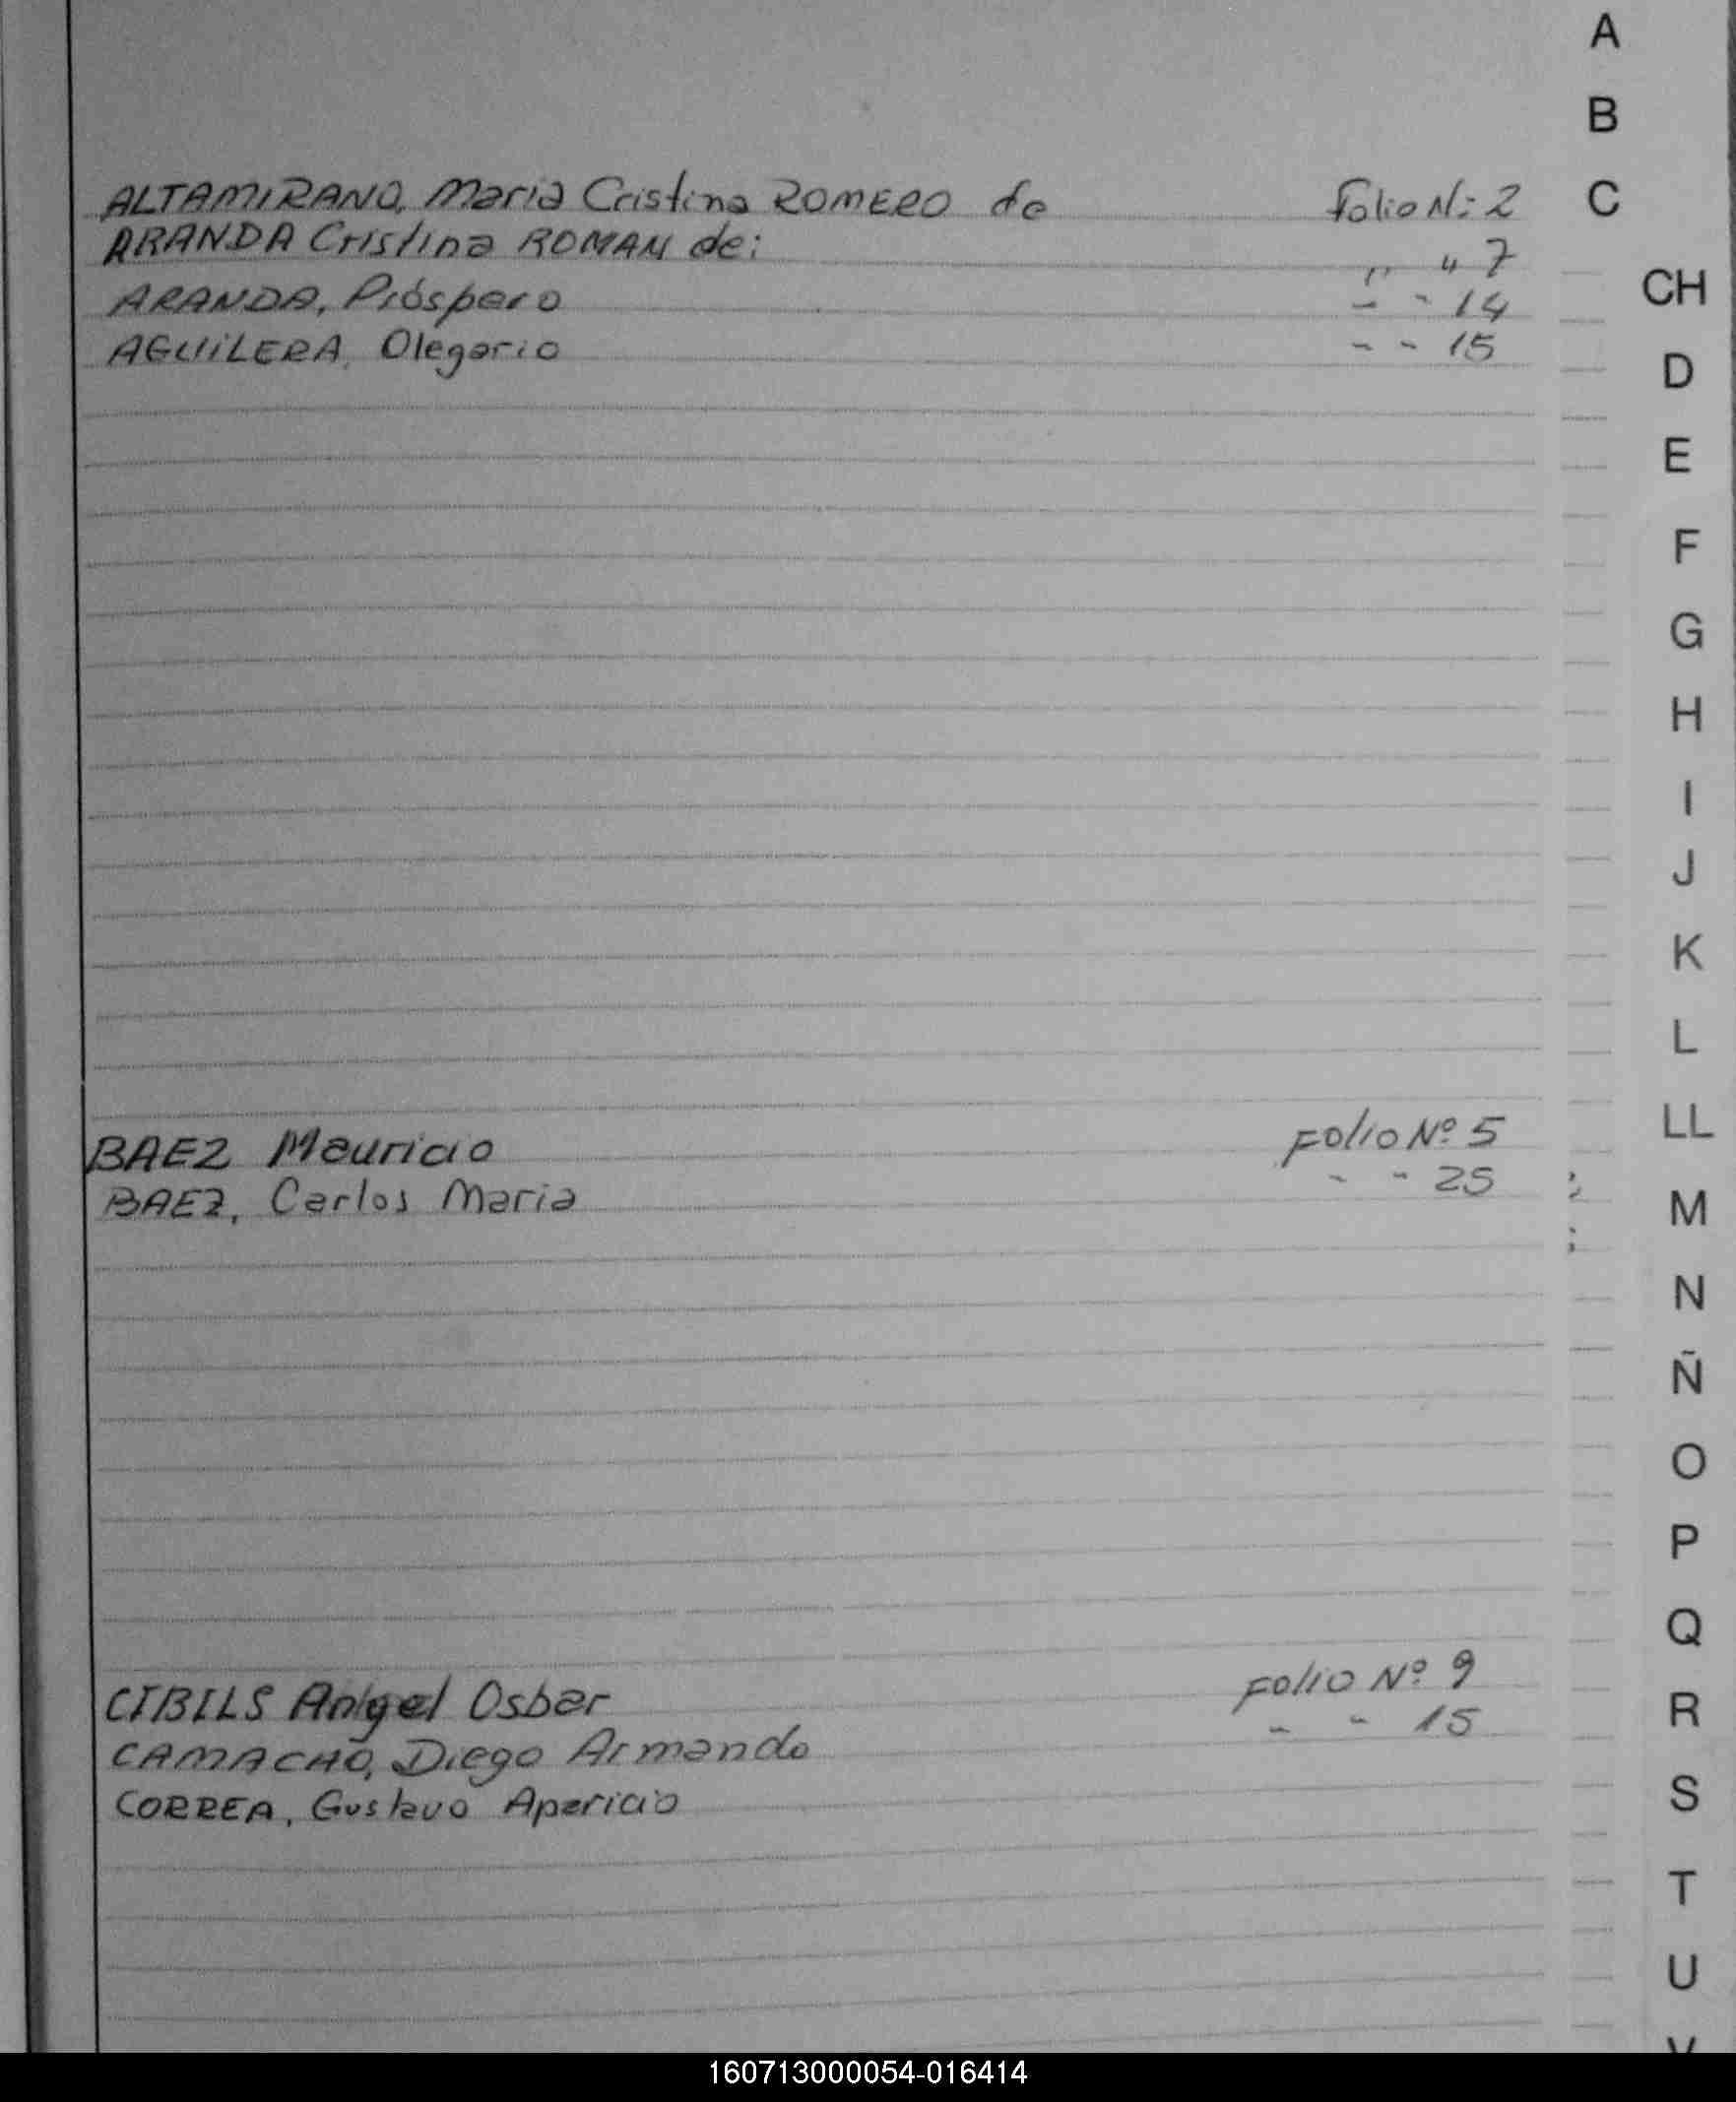 A
B
C
ALTAMIRANO, Maria Cristina ROMERO de Folio N: 2
ARANDA Cristina ROMAN de: " " 7
CH
ARANDA, Próspero - - 14
AGUILERA, Olegario - - 15
D
E
F
G
H
I
J
K
L
LL
BAEZ Mauricio Folio Nº 5
BAEZ, Carlos Maria - - 25
M
N
Ñ
O
P
Q
CIBILS Angel Osbar Folio Nº 9
CAMACHO, Diego Armando - - 15
CORREA, Gustavo Aparicio
R
S
T
U
V
160713000054-016414